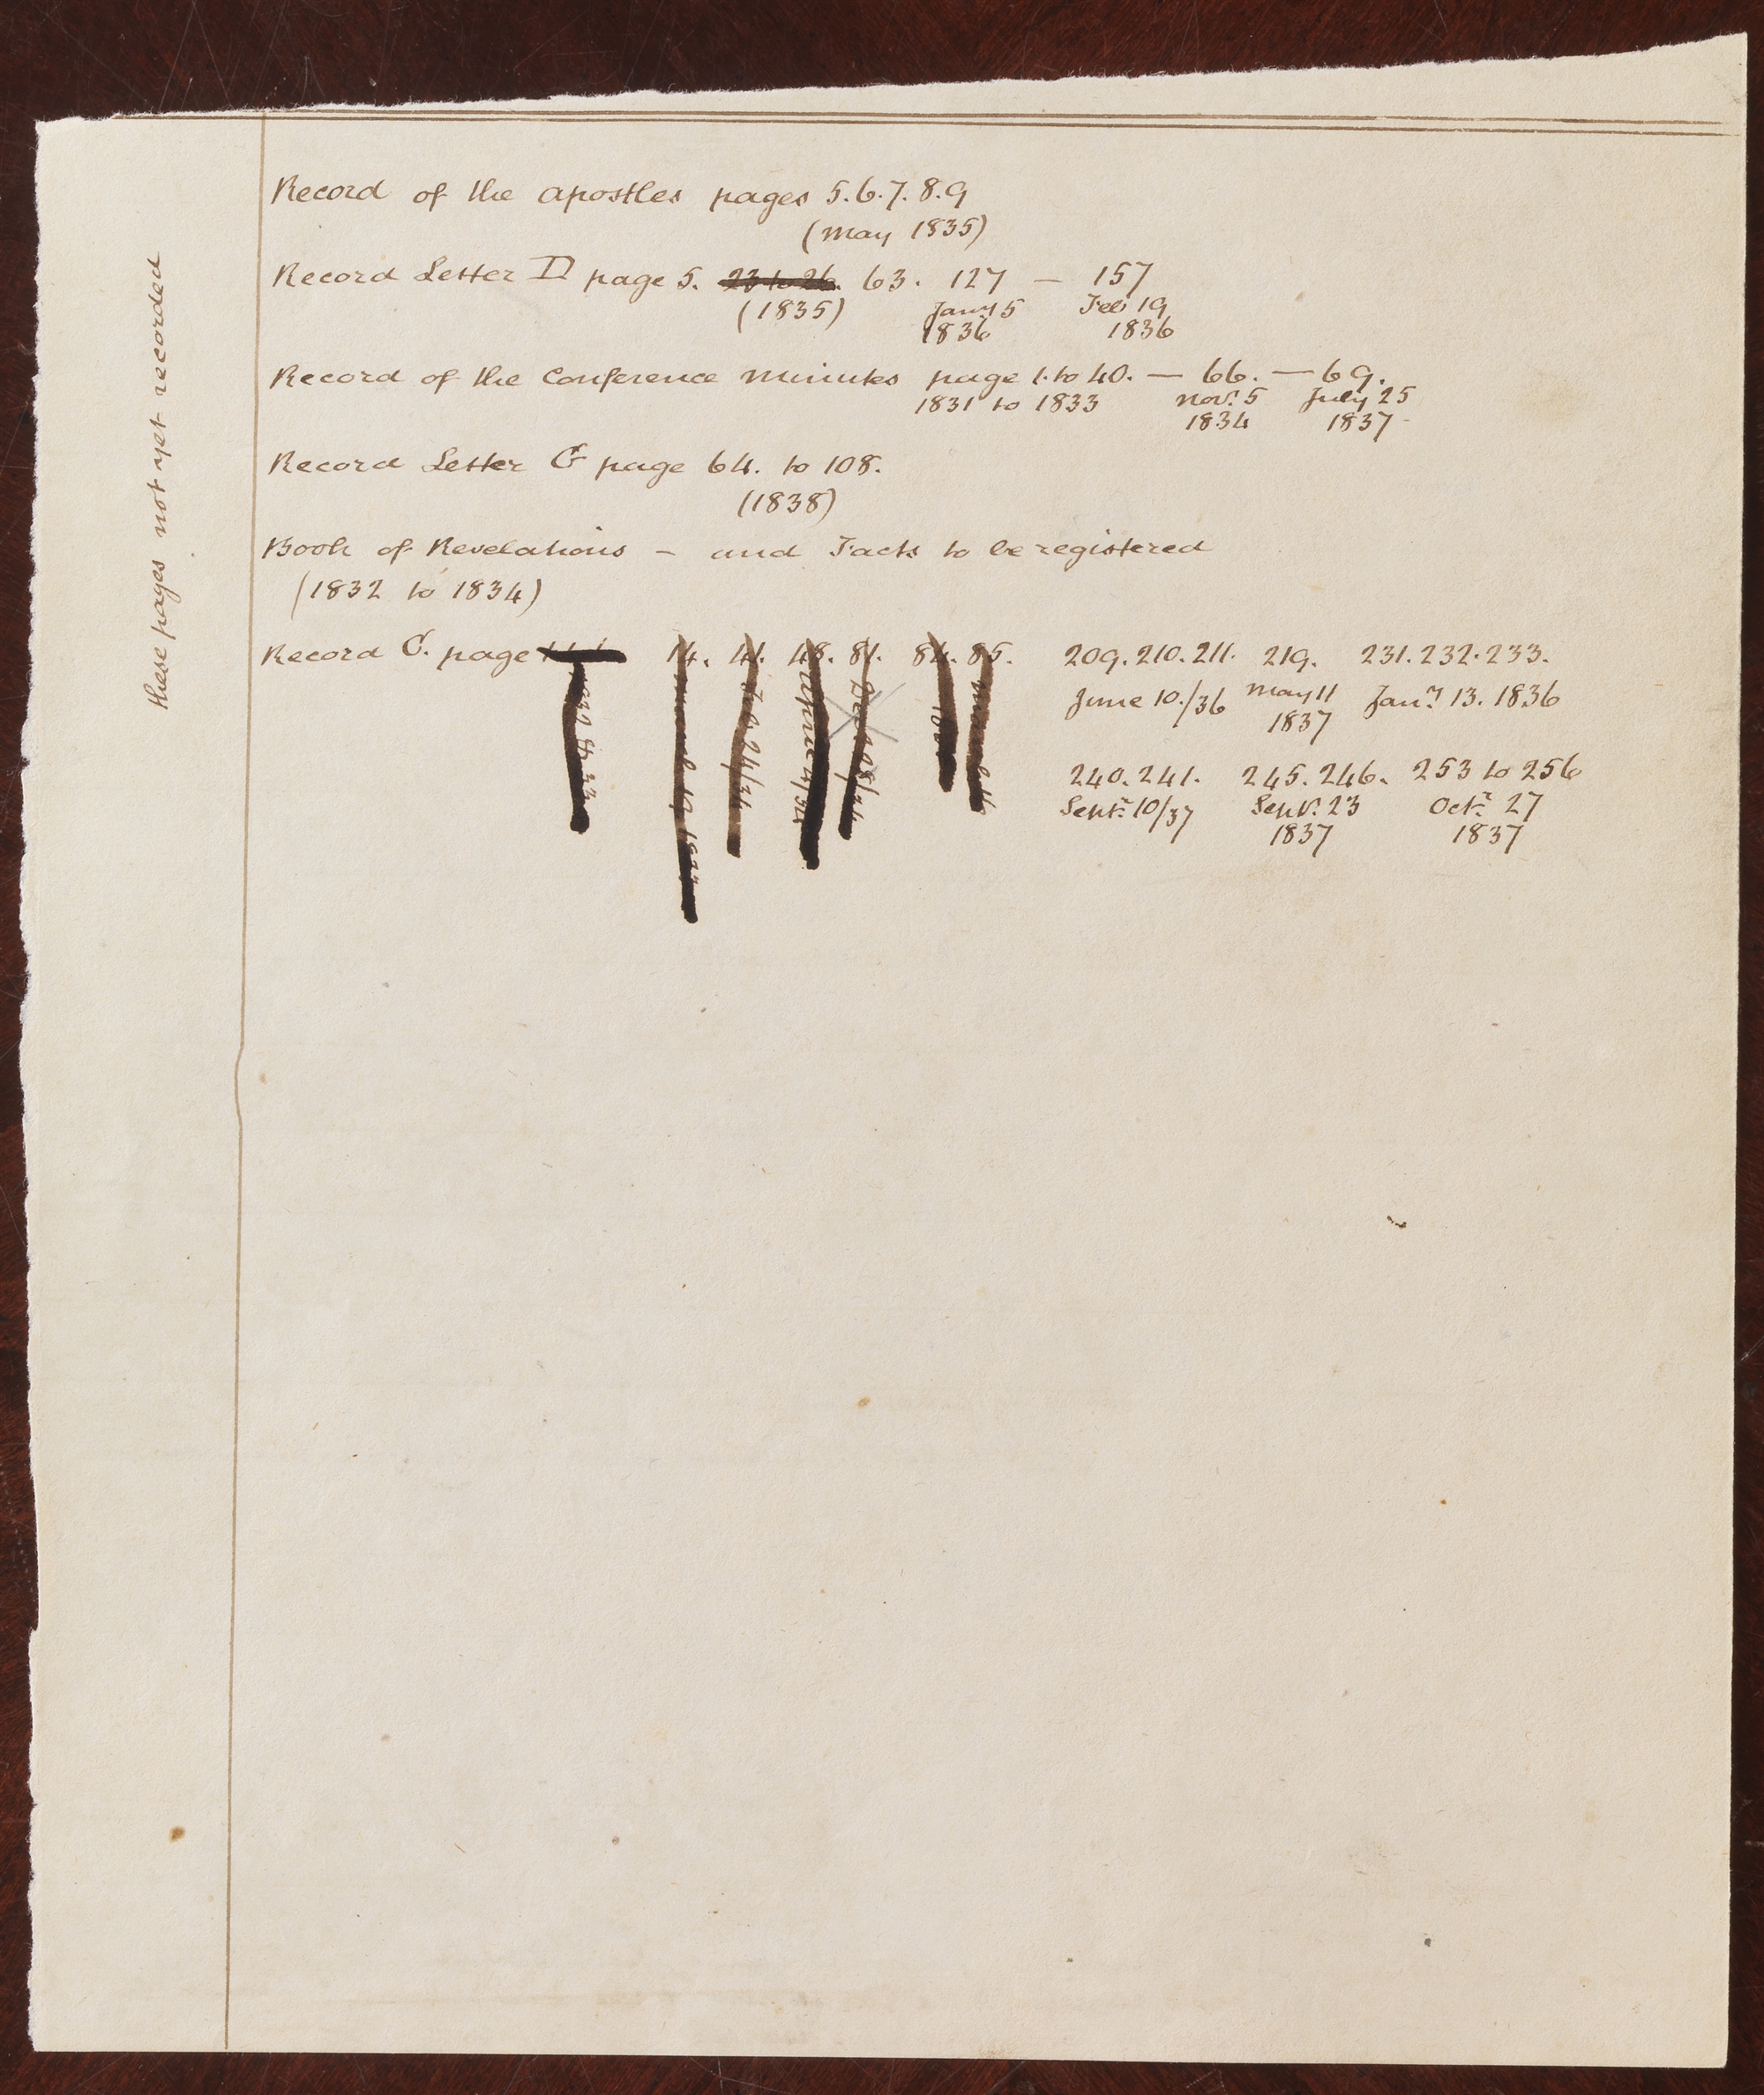 these pages not yet recorded
Record of the apostles pages 5.6.7.8.9
(May 1835)
Record Letter D page 5. 23 to 26. 63. 127 — 157
(1835) Jany 5 Feb 19
1836 1836
Record of the Conference Minutes page 1. to 40. — 66. — 69.
1831 to 1833 Novr. 5 July 25
1834 1837
Record Letter C page 64. to 108.
(1838)
Book of Revelations – and Facts to be registered
(1832 to 1834)
Record C. page 14. 41. 48. 81. 84. 85. 209. 210. 211. 219. 231. 232. 233.
June 10./36 May 11 Jany. 13. 1836
1837
240. 241. 245. 246. 253 to 256
Septr. 10/37 Sepr. 23 Octr. 27
1837 1837